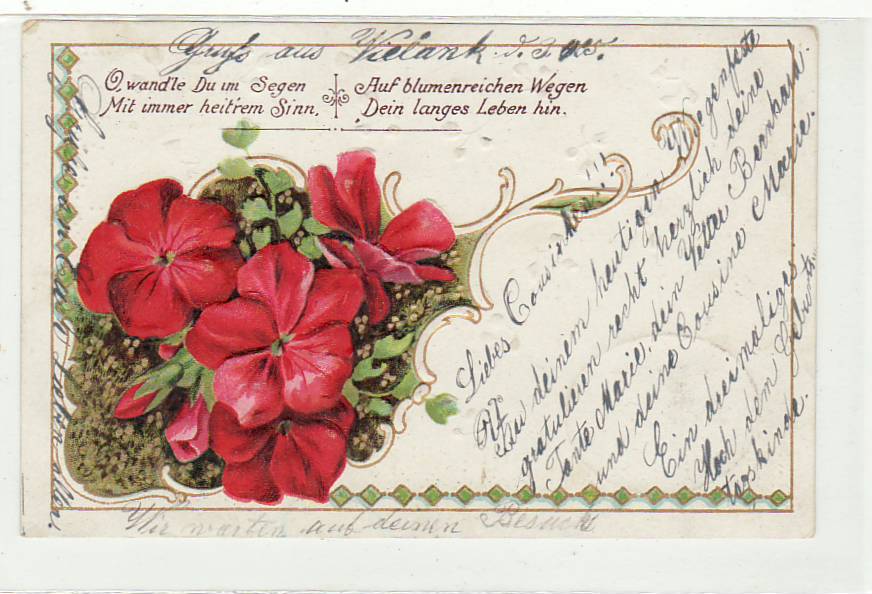 Gruß aus Vielank d. 3.
O, wand'le Du im Segen
Mit immer heitrem Sinn,
Auf blumenreichen Wegen
Dein langes Leben hin.
Liebes Cousinchen!!
Zu deinem heutigen Wiegenfeste
gratulieren recht herzlich deine
Tante Marie, dein Vetter Bernhard
und deine Cousine Marie.
Ein dreimaliges
Hoch dem Geburts
tagskinde.
Wir warten auf deinen Besuch